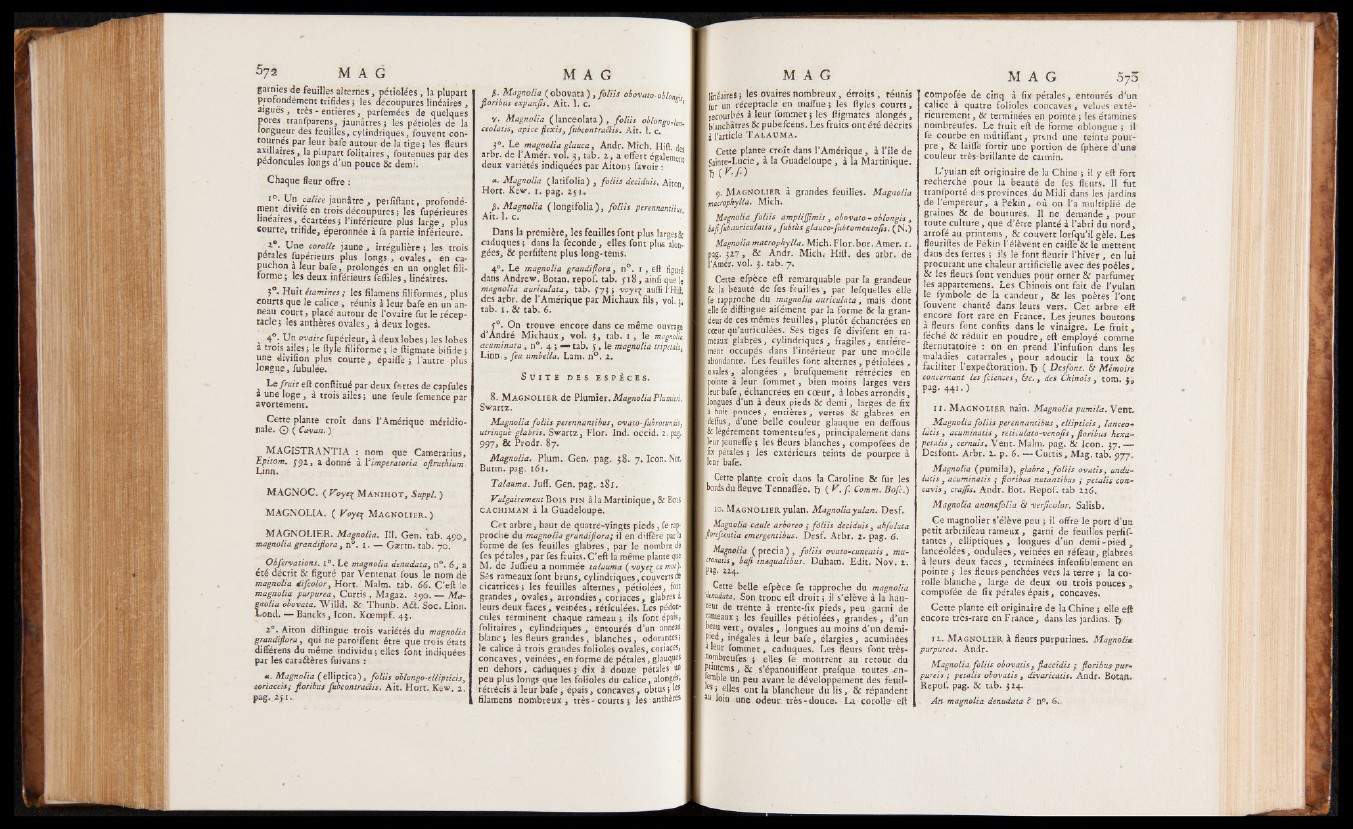 572 M A G
garnies de feuilles alternes, pétiolées, la plupart
profondément trifides; les découpures linéaires,
aiguës, très-entières, parsemées de quelques
pores transparens, jaunâtres; les pétioles de la
longueur des feuilles, cylindriques, souvent con-
tournés par leur base autour de la tige; les fleurs
axillaires, la plupart solitaires, soutenues par des
pédoncules longs d'un pouce & demi.
Chaque fleur offre :
1°. Un calice jaunâtre, persistant, profondé-
ment divisé en trois découpures; les supérieures
linéaires, écartées; l'inférieure plus large, plus
courte, trifide, éperonnée à sa partie inférieure.
2°. Une corolle jaune, irrégulière; les trois
pétales supérieurs plus longs, ovales, en ca-
puchon à leur base, prolongés en un onglet fili-
forme; les deux inférieurs sessiles, linéaires.
3°. Huit étamines; les filamens filiformes, plus
courts que le calice, réunis à leur base en un an-
neau court, placé autour de l'ovaire sur le récep-
tacle; les anthères ovales, à deux loges.
4°. Un ovaire supérieur, à deux lobes; les lobes
à trois ailes; le style filiforme; le stigmate bifide;
une division plus courte, épaisse; l'autre plus
longue, subulée.
Le fruit est constitué par deux sortes de capsules
à une loge, à trois ailes; une seule semence par
avortement.
Cette plante croît dans l'Amérique méridio-
nale. ☉ ( Cavan. )
MAGISTRANTIA : nom que Camerarius,
Epitom. 592, a donné à l'imperatoria ostruthium.
Linn.
MAGNOC. ( Voyez MANIHOT, Suppl. )
MAGNOLIA. ( Voyez MAGNOLIER. )
MAGNOLIER. Magnolia. Ill. Gen. tab. 490,
magnolia grandiflora, n°. 1. — Gærtn. tab. 70.
Observations. 1°. Le magnolia denudata, n°. 6, a
été décrit & figuré par Ventenat sous le nom de
magnolia discolor, Hort. Malm. tab. 66. C'est le
magnolia purpurea, Curtis, Magaz. 390. — Ma-
gnolia obovata. Willd. & Thunb. Act. Soc. Linn.
Lond. — Bancks, Icon. Kœmpf. 43.
2°. Aiton distingue trois variétés du magnolia
grandiflora, qui ne paroissent être que trois états
différens du même individu; elles sont indiquées
par les caractères suivans :
α. Magnolia (elliptica), foliis oblongo-ellipticis,
coriaceis; floribus subcontractis. Ait. Hort. Kew. 2.
pag. 251.
M A G
β. Magnolia (obovata), foliis obovato-oblongis,
floribus expansis. Ait. l. c.
γ. Magnolia (lanceolata), foliis oblongo-lan-
ceolatis, apice flexis, subcontractis. Ait. l. c.
3°. Le magnolia glauca, Andr. Mich. Hist. des
arbr. de l'Amér. vol. 3, tab. 2, a offert également
deux variétés indiquées par Aiton; savoir :
α. Magnolia (latifolia), foliis deciduis. Aiton,
Hort. Kew. 1. pag. 251.
β. Magnolia (longifolia), foliis perennantibus.
Ait. l. c.
Dans la première, les feuilles sont plus larges &
caduques; dans la seconde, elles sont plus alon-
gées, & persistent plus long-tems.
4°. Le magnolia grandiflora, n°. 1, est figuré
dans Andrew. Botan. repos. tab. 518, ainsi que le
magnolia auriculata, tab. 573; voyez aussi l'Hist.
des arbr. de l'Amérique par Michaux fils, vol. 3,
tab. 1, & tab. 6.
5°. On trouve encore dans ce même ouvrage
d'André Michaux, vol. 3, tab. 1, le magnolia
acuminata, n°. 4; — tab. 5, le magnolia tripetala,
Linn., seu umbella. Lam. n°. 2.
SUITE DES ESPÈCES.
8. MAGNOLIER de Plumier. Magnolia Plumieri.
Swartz.
Magnolia foliis perennantibus, ovato-subrotundis,
utrinquè glabris. Swartz, Flor. Ind. occid. 2. pag.
997, & Prodr. 87.
Magnolia. Plum. Gen. pag. 38. 7. Icon. Nit.
Burm. pag. 161.
Talauma. Juss. Gen. pag. 281.
Vulgairement BOIS PIN à la Martinique, & BOIS
CACHIMAN à la Guadeloupe.
Cet arbre, haut de quatre-vingts pieds, se rap-
proche du magnolia grandiflora; il en diffère par la
forme de ses feuilles glabres, par le nombre de
ses pétales, par ses fruits. C'est la même plante que
M. de Jussieu a nommée talauma (voyez ce mot).
Ses rameaux sont bruns, cylindriques, couverts de
cicatrices; les feuilles alternes, pétiolées, fort
grandes, ovales, arrondies, coriaces, glabres à
leurs deux faces, veinées, réticulées. Les pédon-
cules terminent chaque rameau; ils sont épais,
solitaires, cylindriques, entourés d'un anneau
blanc; les fleurs grandes, blanches, odorantes;
le calice à trois grandes folioles ovales, coriaces,
concaves, veinées, en forme de pétales, glauques
en dehors, caduques; dix à douze pétales un
peu plus longs que les folioles du calice, alongés,
rétrécis à leur base, épais, concaves, obtus; les
filamens nombreux, très-courts; les anthères
M A G
linéaires; les ovaires nombreux, étroits, réunis
sur un réceptacle en massue; les styles courts,
recourbés à leur sommet; les stigmates alongés,
blanchâtres & pubescens. Les fruits ont été décrits
à l'article TALAUMA.
Cette plante croît dans l'Amérique, à l'île de
Sainte-Lucie, à la Guadeloupe, à la Martinique.
♄ (V. s.)
9. MAGNOLIER à grandes feuilles. Magnolia
macrophylla. Mich.
Magnolia foliis amplissimis, obovato-oblongis,
basi subauriculatis, subtùs glauco-subtomentosis. (N.)
Magnolia macrophylla. Mich. Flor. bor. Amer. 1.
pag. 327, & Andr. Mich. Hist. des arbr. de
l'Amér. vol. 3. tab. 7.
Cette espèce est remarquable par la grandeur
& la beauté de ses feuilles, par lesquelles elle
se rapproche du magnolia auriculata, mais dont
elle se distingue aisément par la forme & la gran-
deur de ces mêmes feuilles, plutôt échancrées en
cœur qu'auriculées. Ses tiges se divisent en ra-
meaux glabres, cylindriques, fragiles, entière-
ment occupés dans l'intérieur par une moëlle
abondante. Les feuilles sont alternes, pétiolées,
ovales, alongées, brusquement rétrécies en
pointe à leur sommet, bien moins larges vers
leur base, échancrées en cœur, à lobes arrondis,
longues d'un à deux pieds & demi, larges de six
à huit pouces, entières, vertes & glabres en
dessus, d'une belle couleur glauque en dessous
& légérement tomenteuses, principalement dans
leur jeunesse; les fleurs blanches, composées de
six pétales; les extérieurs teints de pourpre à
leur base.
Cette plante croît dans la Caroline & sur les
bords du fleuve Tennassée. ♄ (V. s. Comm. Bosc.)
10. MAGNOLIER yulan. Magnolia yulan. Desf.
Magnolia caule arboreo; foliis deciduis, absolutâ
florescentiâ emergentibus. Desf. Arbr. 2. pag. 6.
Magnolia (precia), foliis ovato-cuneatis, mu-
cronatis, basi inæqualibus. Duham. Edit. Nov. 2.
pag. 224.
Cette belle espèce se rapproche du magnolia
denudata. Son tronc est droit; il s'élève à la hau-
teur de trente à trente-six pieds, peu garni de
rameaux; les feuilles pétiolées, grandes, d'un
beau vert, ovales, longues au moins d'un demi-
pied, inégales à leur base, élargies, acuminées
à leur sommet, caduques. Les fleurs sont très-
nombreuses; elles se montrent au retour du
printems, & s'épanouissent presque toutes en-
semble un peu avant le développement des feuil-
les; elles ont la blancheur du lis, & répandent
au loin une odeur très-douce. La corolle est
M A G 573
composée de cinq à six pétales, entourés d'un
calice à quatre folioles concaves, velues exté-
rieurement, & terminées en pointe; les étamines
nombreuses. Le fruit est de forme oblongue; il
se courbe en mûrissant, prend une teinte pour-
pre, & laisse sortir une portion de sphère d'une
couleur très-brillante de carmin.
L'yulan est originaire de la Chine; il y est fort
recherché pour la beauté de ses fleurs. Il fut
transporté des provinces du Midi dans les jardins
de l'empereur, à Pekin, où on l'a multiplié de
graines & de boutures. Il ne demande, pour
toute culture, que d'être planté à l'abri du nord,
arrosé au printems, & couvert lorsqu'il gèle. Les
fleuristes de Pekin l'élèvent en caisse & le mettent
dans des serres; ils le font fleurir l'hiver, en lui
procurant une chaleur artificielle avec des poëles,
& les fleurs sont vendues pour orner & parfumer
les appartemens. Les Chinois ont fait de l'yulan
le symbole de la candeur, & les poètes l'ont
souvent chanté dans leurs vers. Cet arbre est
encore fort rare en France. Les jeunes boutons
à fleurs sont confits dans le vinaigre. Le fruit,
séché & réduit en poudre, est employé comme
sternutatoire : on en prend l'infusion dans les
maladies catarrales, pour adoucir la toux &
faciliter l'expectoration. ♄ ( Desfont. & Mémoire
concernant les sciences, &c., des Chinois, tom. 3,
pag. 441. )
11. MAGNOLIER nain. Magnolia pumila. Vent.
Magnolia foliis perennantibus, ellipticis, lanceo-
latis, acuminatis, reticulato-venosis, floribus hexa-
petalis, cernuis. Vent. Malm. pag. & Icon. 37. —
Desfont. Arbr. 2. p. 6. — Curtis, Mag. tab. 977.
Magnolia (pumila), glabra, foliis ovatis, undu-
latis, acuminatis; floribus nutantibus; petalis con-
cavis, crassis. Andr. Bot. Repos. tab 226.
Magnolia anonæfolia & versicolor. Salisb.
Ce magnolier s'élève peu; il offre le port d'un
petit arbrisseau rameux, garni de feuilles persis-
tantes, elliptiques, longues d'un demi-pied,
lancéolées, ondulées, veinées en réseau, glabres
à leurs deux faces, terminées insensiblement en
pointe; les fleurs penchées vers la terre; la co-
rolle blanche, large de deux ou trois pouces,
composée de six pétales épais, concaves.
Cette plante est originaire de la Chine; elle est
encore très-rare en France, dans les jardins. ♄
12. MAGNOLIER à fleurs purpurines. Magnolia
purpurea. Andr.
Magnolia foliis obovatis, flaccidis; floribus pur-
pureis; petalis obovatis, divaricatis. Andr. Botan.
Repos. pag. & tab. 324.
An magnolia denudata ? n°. 6.